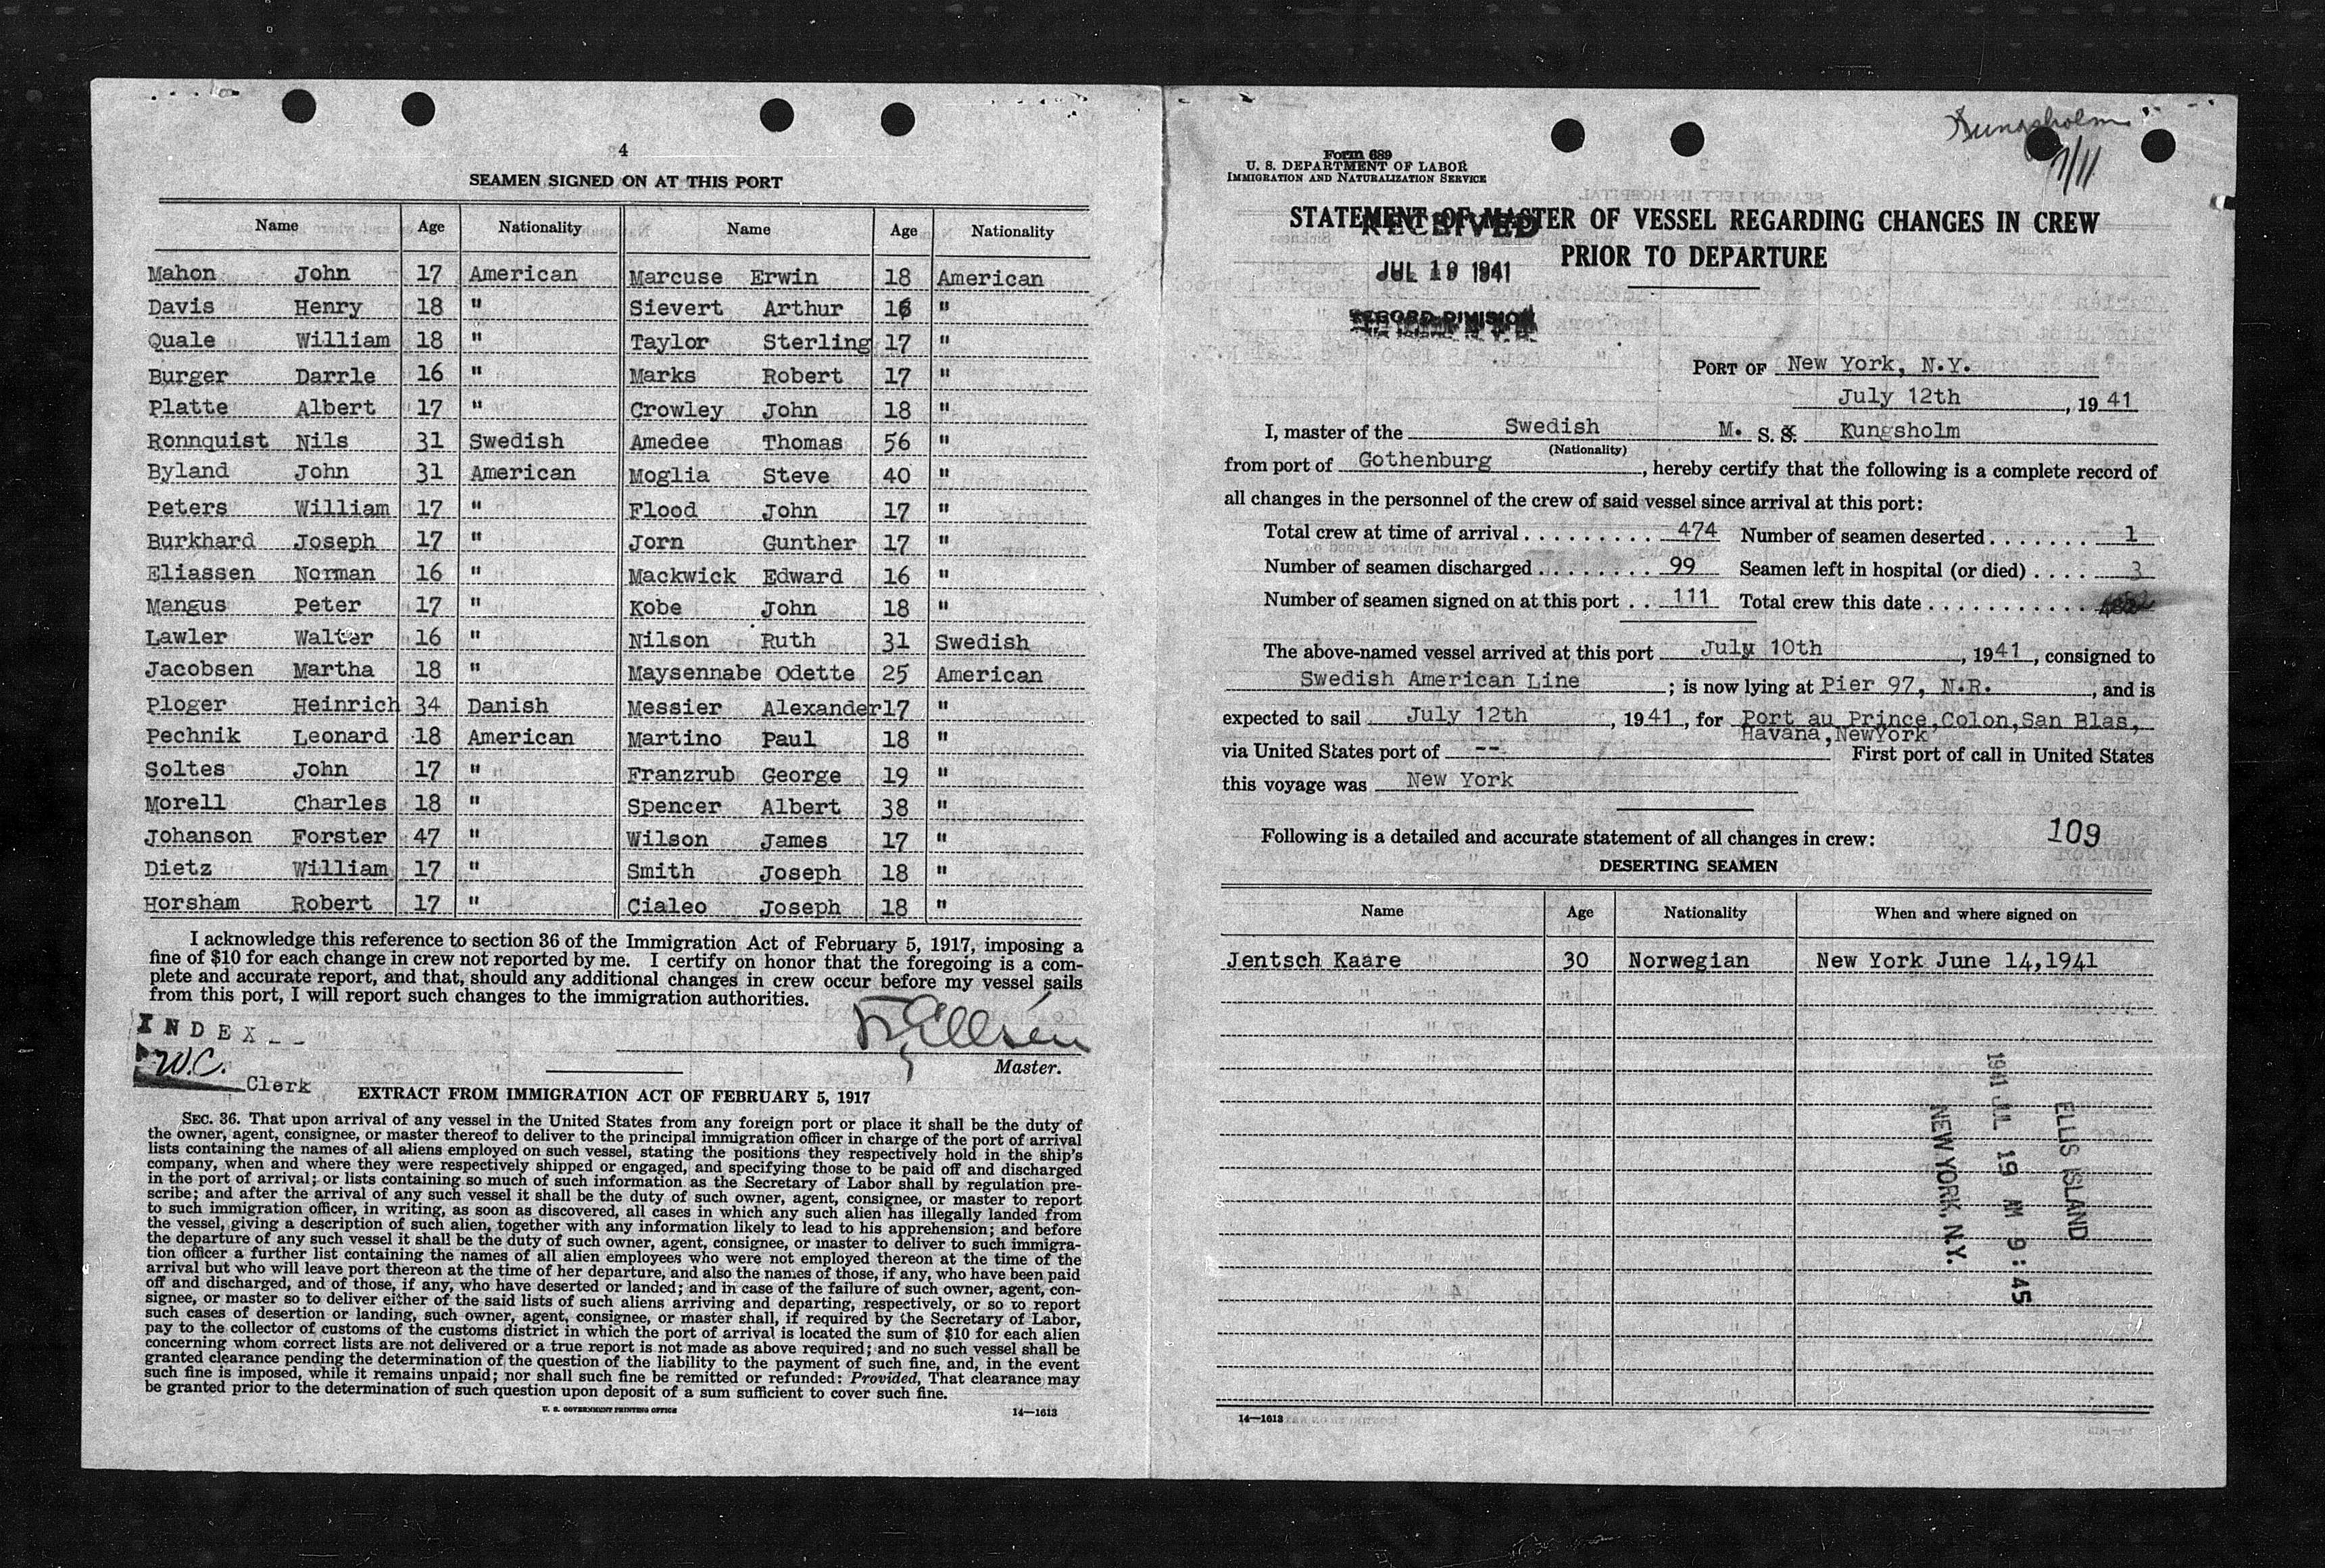 4
SEAMEN SIGNED ON AT THIS PORT
Name Age Nationality Name Age Nationality
Mahon John 17 American Marcuse Erwin 18 American
Davis Henry 18 " Sievert Arthur 16 "
Quale William 18 " Taylor Sterling 17 "
Burger Darrle 16 " Marks Robert 17 "
Platte Albert 17 " Crowley John 18 "
Ronnquist Nils 31 Swedish Amedee Thomas 56 "
Byland John 31 American Moglia Steve 40 "
Peters William 17 " Flood John 17 "
Burkhard Joseph 17 " Jorn Gunther 17 "
Eliassen Norman 16 " Mackwick Edward 16 "
Mangus Peter 17 " Kobe John 18 "
Lawler Walter 16 " Nilson Ruth 31 Swedish
Jacobsen Martha 18 " Maysennabe Odette 25 American
Ploger Heinrich 34 Danish Messier Alexander 17 "
Pechnik Leonard 18 American Martino Paul 18 "
Soltes John 17 " Franzrub George 19 "
Morell Charles 18 " Spencer Albert 38 "
Johanson Forster 47 " Wilson James 17 "
Dietz William 17 " Smith Joseph 18 "
Horsham Robert 17 " Cialeo Joseph 18 "
I acknowledge this reference to section 36 of the Immigration Act of February 5, 1917, imposing a
fine of $10 for each change in crew not reported by me. I certify on honor that the foregoing is a com-
plete and accurate report, and that, should any additional changes in crew occur before my vessel sails
from this port, I will report such changes to the immigration authorities.
INDEX
W.C.
Clerk
Master.
EXTRACT FROM IMMIGRATION ACT OF FEBRUARY 5, 1917
SEC. 36. That upon arrival of any vessel in the United States from any foreign port or place it shall be the duty of
the owner, agent, consignee, or master thereof to deliver to the principal immigration officer in charge of the port of arrival
lists containing the names of all aliens employed on such vessel, stating the positions they respectively hold in the ship's
company, when and where they were respectively shipped or engaged, and specifying those to be paid off and discharged
in the port of arrival; or lists containing so much of such information as the Secretary of Labor shall by regulation pre-
scribe; and after the arrival of any such vessel it shall be the duty of such owner, agent, consignee, or master to report
to such immigration officer, in writing, as soon as discovered, all cases in which any such alien has illegally landed from
the vessel, giving a description of such alien, together with any information likely to lead to his apprehension; and before
the departure of any such vessel it shall be the duty of such owner, agent, consignee, or master to deliver to such immigra-
tion officer a further list containing the names of all alien employees who were not employed thereon at the time of the
arrival but who will leave port thereon at the time of her departure, and also the names of those, if any, who have been paid
off and discharged, and of those, if any, who have deserted or landed; and in case of the failure of such owner, agent, con-
signee, or master so to deliver either of the said lists of such aliens arriving and departing, respectively, or so to report
such cases of desertion or landing, such owner, agent, consignee, or master shall, if required by the Secretary of Labor,
pay to the collector of customs of the customs district in which the port of arrival is located the sum of $10 for each alien
concerning whom correct lists are not delivered or a true report is not made as above required; and no such vessel shall be
granted clearance pending the determination of the question of the liability to the payment of such fine, and, in the event
such fine is imposed, while it remains unpaid; nor shall such fine be remitted or refunded: Provided, That clearance may
be granted prior to the determination of such question upon deposit of a sum sufficient to cover such fine.
U. S. GOVERNMENT PRINTING OFFICE 14—1613
Kungsholm
7/11
Form 689
U. S. DEPARTMENT OF LABOR
IMMIGRATION AND NATURALIZATION SERVICE
STATEMENT OF MASTER OF VESSEL REGARDING CHANGES IN CREW
PRIOR TO DEPARTURE
RECEIVED
JUL 19 1941
RECORD DIVISION
PORT OF New York, N.Y.
July 12th, 1941
I, master of the Swedish M. S. S. Kungsholm
(Nationality)
from port of Gothenburg, hereby certify that the following is a complete record of
all changes in the personnel of the crew of said vessel since arrival at this port:
Total crew at time of arrival . . . . . . . . . . 474 Number of seamen deserted . . . . . . . 1
Number of seamen discharged . . . . . . . . 99 Seamen left in hospital (or died) . . . . 3
Number of seamen signed on at this port . . 111 Total crew this date . . . . . . . . . . . . 482
The above-named vessel arrived at this port July 10th, 1941, consigned to
Swedish American Line; is now lying at Pier 97, N.R., and is
expected to sail July 12th, 1941, for Port au Prince,Colon,San Blas,
Havana,NewYork
via United States port of -- First port of call in United States
this voyage was New York
Following is a detailed and accurate statement of all changes in crew: 109
DESERTING SEAMEN
Name Age Nationality When and where signed on
Jentsch Kaare 30 Norwegian New York June 14,1941
ELLIS ISLAND
1941 JUL 19 AM 9:45
NEW YORK, N.Y.
14—1613